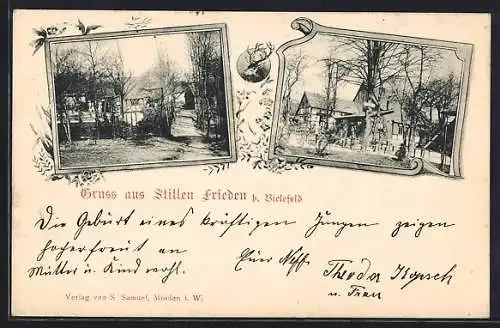 Gruss aus Stillen Frieden b. Bielefeld
Die Geburt eines kräftigen Jungen zeigen
hocherfreut an
Mutter u. Kind wohl.
Euer Neffe
Theodor
u. Frau
Verlag von S. Samuel, Minden i. W.